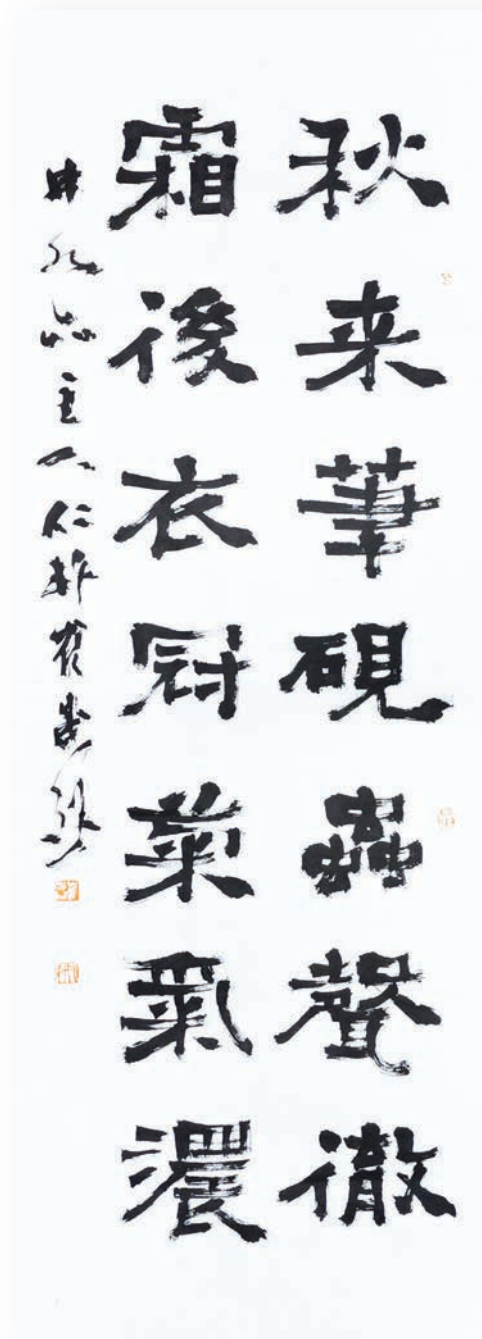 秋来筆硯蟲聲徹
霜後衣冠菊氣濃
主人仁